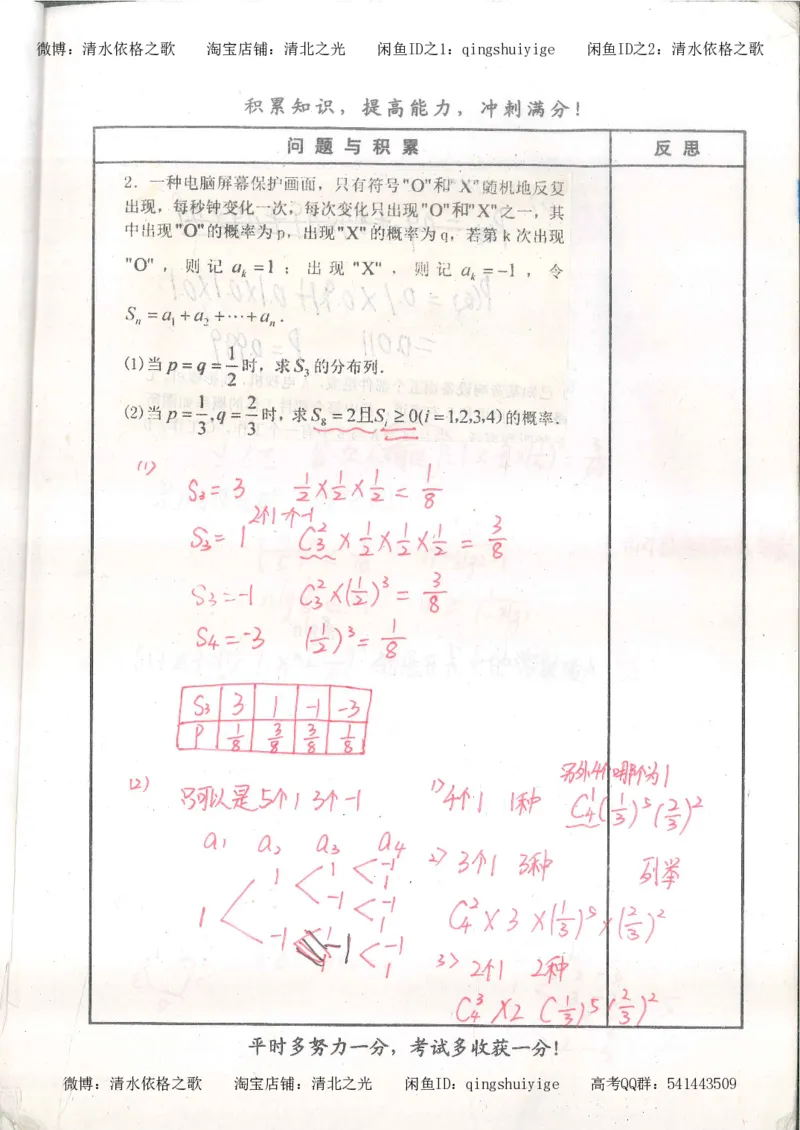 微博：清水依格之歌 淘宝店铺：清北之光 闲鱼ID之1：qingshuiyige 闲鱼ID之2：清水依格之歌
积累知识，提高能力，冲刺满分！
问题与积累 反思
2. 一种电脑屏幕保护画面，只有符号"O"和"X"随机地反复
出现，每秒钟变化一次，每次变化只出现"O"和"X"之一，其
中出现"O"的概率为p，出现"X"的概率为q，若第k次出现
"O"，则记 a_k=1；出现"X"，则记 a_k=-1，令
S_n=a_1+a_2+⋯+a_n.
(1)当p=q=1/2时，求S_3的分布列.
(2)当p=1/3,q=2/3时，求S_8=2且S_i≥0(i=1,2,3,4)的概率.
(1)
S_3=3 1/2×1/2×1/2=1/8
2个1一个-1
S_3=1 C_3^2×1/2×1/2×1/2=3/8
S_3=-1 C_3^2×(1/2)^3=3/8
S_4=-3 (1/2)^3=1/8
S_3 3 1 -1 -3
P 1/8 3/8 3/8 1/8
另外4个哪个为1
(2) 只可以是5个1 3个-1 1) 4个1 1种 C_4^1(1/3)^5(2/3)^2
a_1 a_2 a_3 a_4
2) 3个1 3种 列举
1 1 -1
1
-1 -1
1
C_4^2×3×(1/3)^5×(2/3)^2
1
-1 -1 -1
1
3) 2个1 2种
C_4^3×2(1/3)^5(2/3)^2
平时多努力一分，考试多收获一分！
微博：清水依格之歌 淘宝店铺：清北之光 闲鱼ID：qingshuiyige 高考QQ群：541443509